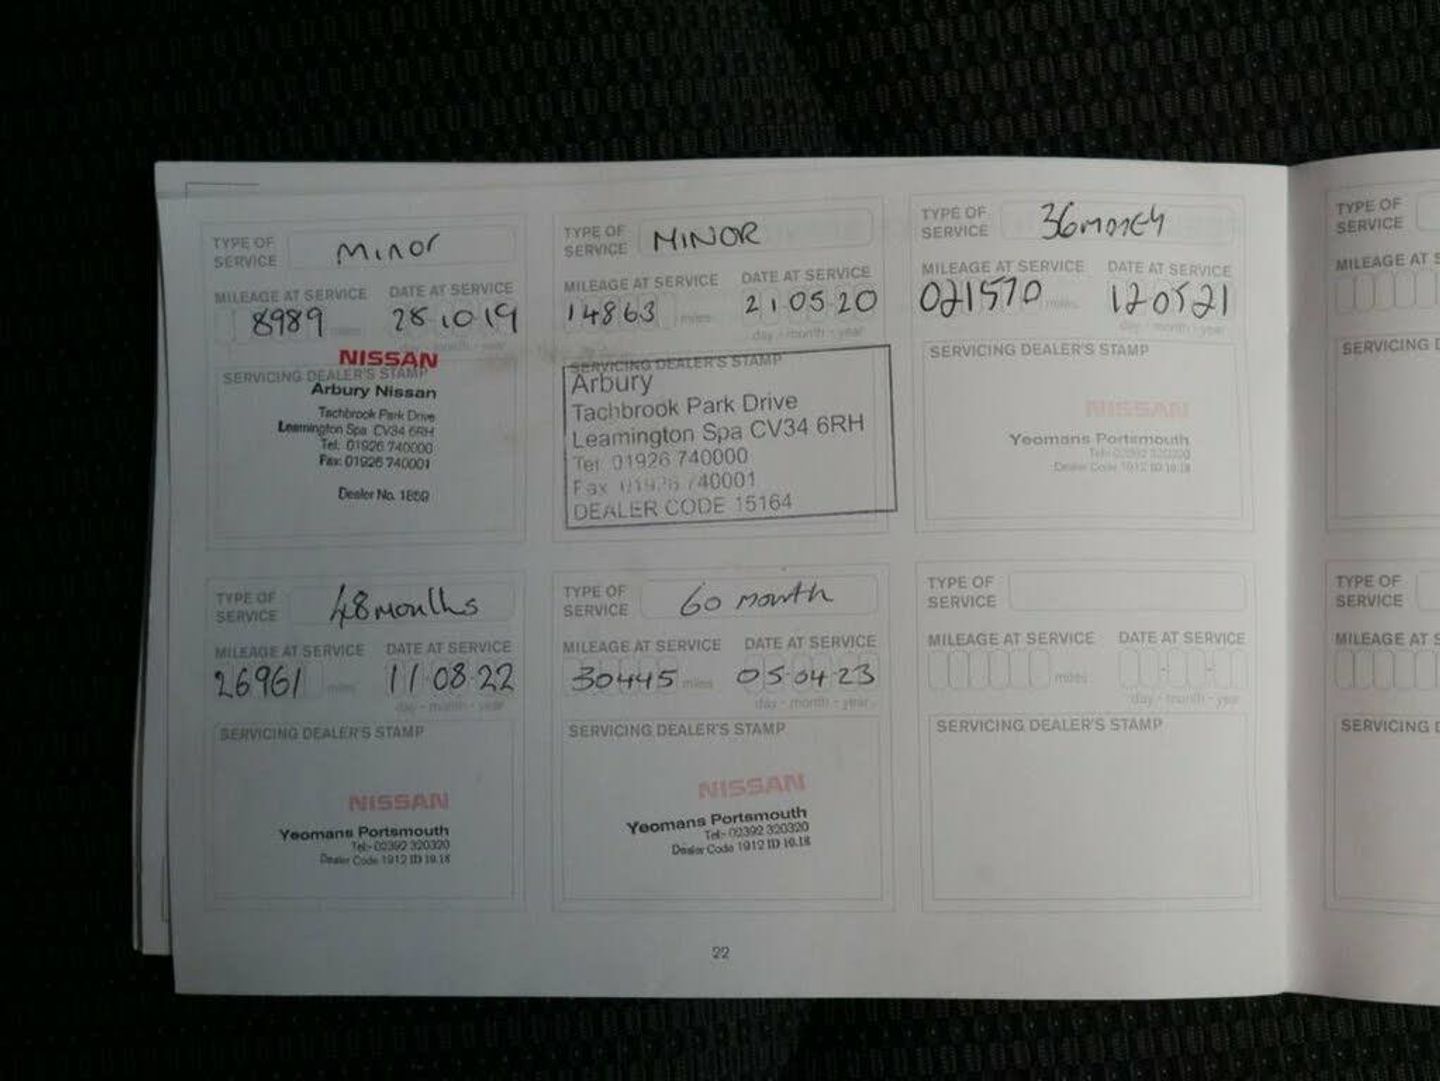 TYPE OF SERVICE Minor
MILEAGE AT SERVICE DATE AT SERVICE
8989 miles 28 10 19
day - month - year
NISSAN
SERVICING DEALER'S STAMP
Arbury Nissan
Tachbrook Park Drive
Leamington Spa CV34 6RH
Tel: 01926 740000
Fax: 01926 740001
Dealer No. 1859
TYPE OF SERVICE MINOR
MILEAGE AT SERVICE DATE AT SERVICE
14863 miles 21 05 20
day - month - year
SERVICING DEALER'S STAMP
Arbury
Tachbrook Park Drive
Leamington Spa CV34 6RH
Tel 01926 740000
Fax 01926 740001
DEALER CODE 15164
TYPE OF SERVICE 36 month
MILEAGE AT SERVICE DATE AT SERVICE
021570 miles 120521
day - month - year
SERVICING DEALER'S STAMP
NISSAN
Yeomans Portsmouth
Tel:- 02392 320320
Dealer Code 1912 ID 10.18
TYPE OF SERVICE 48 months
MILEAGE AT SERVICE DATE AT SERVICE
26961 miles 11 08 22
day - month - year
SERVICING DEALER'S STAMP
NISSAN
Yeomans Portsmouth
Tel:- 02392 320320
Dealer Code 1912 ID 10.18
TYPE OF SERVICE 60 month
MILEAGE AT SERVICE DATE AT SERVICE
30445 miles 05 04 23
day - month - year
SERVICING DEALER'S STAMP
NISSAN
Yeomans Portsmouth
Tel:- 02392 320320
Dealer Code 1912 ID 10.18
TYPE OF SERVICE
MILEAGE AT SERVICE DATE AT SERVICE
miles
day - month - year
SERVICING DEALER'S STAMP
22
TYPE OF SERVICE
MILEAGE AT
SERVICING
TYPE OF SERVICE
MILEAGE AT
SERVICING